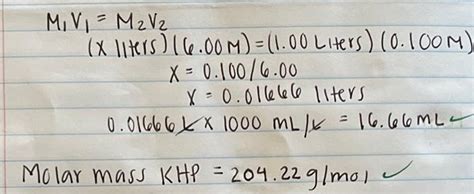 M₁V₁ = M₂V₂
(x liters)(6.00 M) = (1.00 Liters)(0.100 M)
X = 0.100/6.00
X = 0.01666 liters
0.01666 L x 1000 mL/L = 16.66 mL ✓
Molar mass KHP = 204.22 g/mol ✓